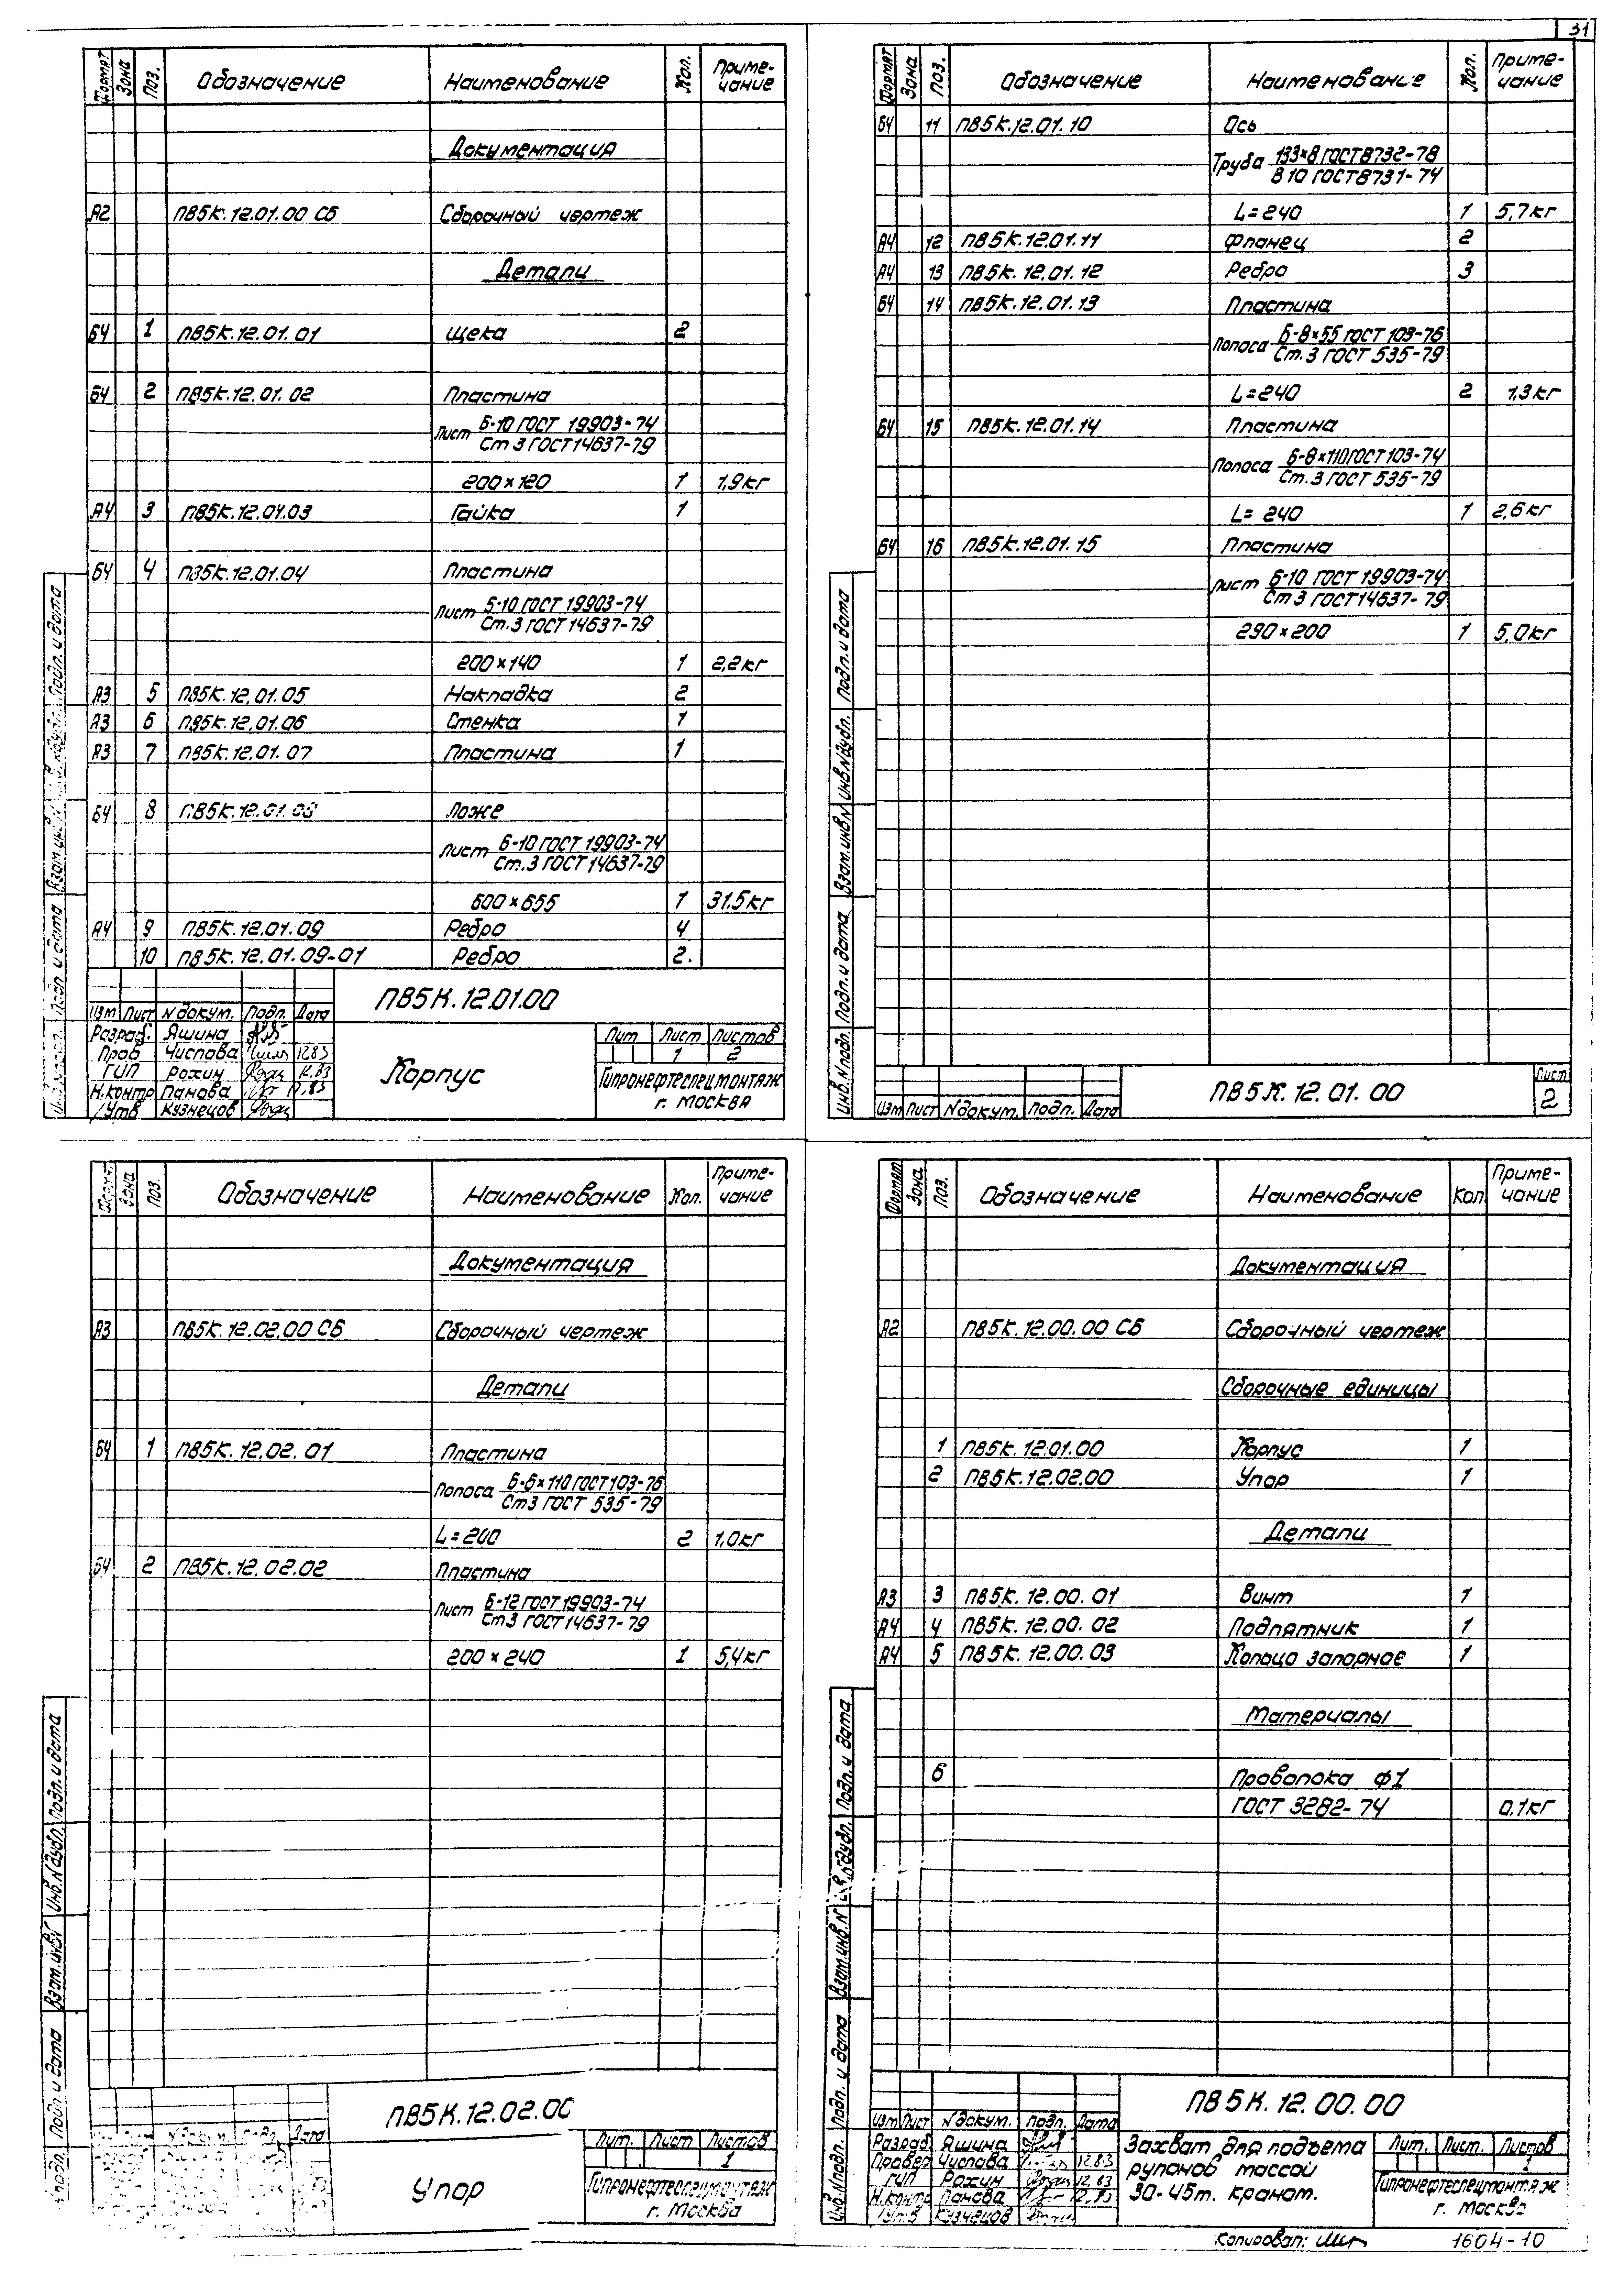 31
Формат Зона Поз. Обозначение Наименование Кол. Приме-
чание
Документация
А2 ПВ5К.12.01.00 СБ Сборочный чертеж
Детали
БЧ 1 ПВ5К.12.01.01 Щека 2
БЧ 2 ПВ5К.12.01.02 Пластина
Лист Б-10 ГОСТ 19903-74
Ст 3 ГОСТ 14637-79
200×120 1 1,9кг
А4 3 ПВ5К.12.01.03 Гайка 1
БЧ 4 ПВ5К.12.01.04 Пластина
Лист Б-10 ГОСТ 19903-74
Ст.3 ГОСТ 14637-79
200×140 1 2,2кг
А3 5 ПВ5К.12.01.05 Накладка 2
А3 6 ПВ5К.12.01.06 Стенка 1
А3 7 ПВ5К.12.01.07 Пластина 1
БЧ 8 ПВ5К.12.01.08 Ложе
Лист Б-10 ГОСТ 19903-74
Ст.3 ГОСТ 14637-79
600×655 1 31.5кг
А4 9 ПВ5К.12.01.09 Ребро 4
10 ПВ5К.12.01.09-01 Ребро 2.
ПВ5К.12.01.00
Изм Лист N докум. Подп. Дата
Разраб. Яшина
Пров Числова 12.83
ГИП Рохин 12.83
Н.контр Панова 12.83
Утв Кузнецов
Корпус
Лит Лист Листов
1 2
Гипронефтеспецмонтаж
г. Москва
Подп. и дата
Взам. инв.N
Подп. и дата
Формат Зона Поз. Обозначение Наименование Кол. Приме-
чание
БЧ 11 ПВ5К.12.01.10 Ось
Труба 133×8 ГОСТ 8732-78
В 10 ГОСТ 8731-74
L=240 1 5,7кг
А4 12 ПВ5К.12.01.11 Фланец 2
А4 13 ПВ5К.12.01.12 Ребро 3
БЧ 14 ПВ5К.12.01.13 Пластина
Полоса Б-8×55 ГОСТ 103-76
Ст.3 ГОСТ 535-79
L=240 2 1.3кг
БЧ 15 ПВ5К.12.01.14 Пластина
Полоса Б-8×110 ГОСТ 103-74
Ст.3 ГОСТ 535-79
L=240 1 2,6кг
БЧ 16 ПВ5К.12.01.15 Пластина
Лист Б-10 ГОСТ 19903-74
Ст 3 ГОСТ 14637-79
290×200 1 5,0кг
Изм Лист N докум. Подп. Дата
ПВ5К.12.01.00
Лист
2
Подп. и дата
Инв.N дубл.
Взам.инв.N
Подп. и дата
Инв.N подл.
Формат Зона Поз. Обозначение Наименование Кол. Приме-
чание
Документация
А3 ПВ5К.12.02.00 СБ Сборочный чертеж
Детали
БЧ 1 ПВ5К.12.02.01 Пластина
Полоса Б-6×110 ГОСТ 103-76
Ст3 ГОСТ 535-79
L=200 2 1,0кг
БЧ 2 ПВ5К.12.02.02 Пластина
Лист Б-12 ГОСТ 19903-74
Ст3 ГОСТ 14637-79
200×240 1 5,4кг
ПВ5К.12.02.00
N докум. Подп. Дата
Упор
Лит. Лист Листов
1
Гипронефтеспецмонтаж
г. Москва
Подп. и дата
Инв.N дубл.
Взам.инв.N
Подп. и дата
N подл.
Формат Зона Поз. Обозначение Наименование Кол Приме-
чание
Документация
А2 ПВ5К.12.00.00 СБ Сборочный чертеж
Сборочные единицы
1 ПВ5К.12.01.00 Корпус 1
2 ПВ5К.12.02.00 Упор 1
Детали
А3 3 ПВ5К.12.00.01 Винт 1
А4 4 ПВ5К.12.00.02 Подпятник 1
А4 5 ПВ5К.12.00.03 Кольцо запорное 1
Материалы
6 Проволока Ф1
ГОСТ 3282-74 0,1кг
ПВ5К.12.00.00
Изм Лист N докум. Подп. Дата
Разраб. Яшина
Провер Числова 12.83
ГИП Рохин 12.83
Н.контр Панова 12.83
Утв Кузнецов
Захват для подъема
рулонов массой
30-45т. краном.
Лит. Лист. Листов
1
Гипронефтеспецмонтаж
г. Москва
Подп. и дата
Взам.инв.N
Подп. и дата
Инв.N подл.
Копировал:
1604-10